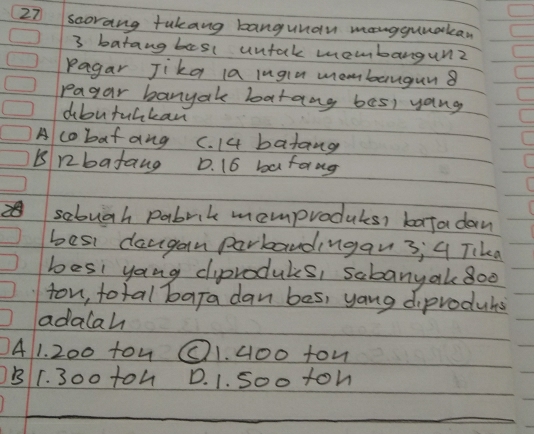 27 seorang tukang bangunan menggunakan
3 batang besi untuk membangun 2
pagar Jika ia ingin membangun 8
pagar banyak batang besi yang
dibutuhkan
A 10 batang C. 14 batang
B 12 batang D. 16 batang
28 sebuah pabrik memproduksi baja dan
besi dengan perbandingan 3; 4 Jika
besi yang diproduksi sebanyak 800
ton, total baja dan besi yang diproduksi
adalah
A 1.200 ton C 1.400 ton
B 1.300 ton D. 1.500 ton